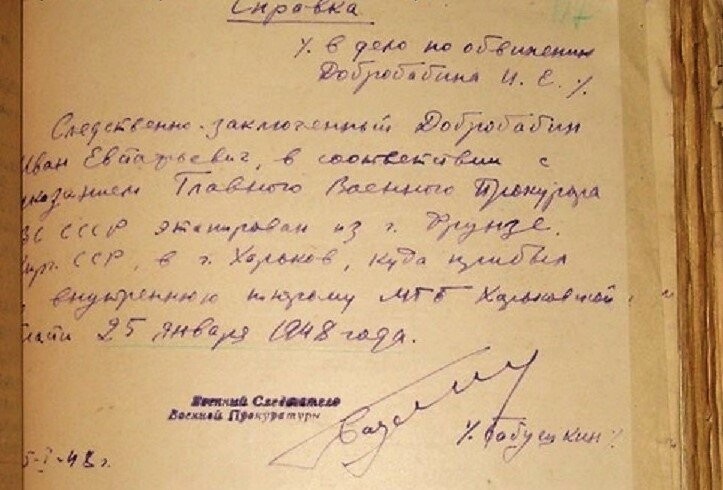 Справка
/. в дело по обвинению
Добробабина И. Е. /.
Следственно-заключенный Добробабин
Иван Евстафьевич, в соответствии с
указанием Главного Военного Прокурора
ВС СССР этапирован из г. Фрунзе,
кирг. ССР, в г. Харьков, куда прибыл
внутреннюю тюрьму МГБ Харьковской
25 января 1948 года.
Военный Следователь
Военной Прокуратуры
/. Бабушкин /.
5-I-48 г.